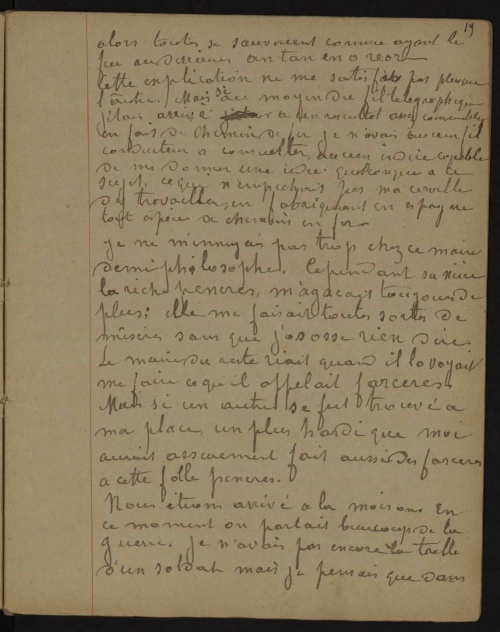 19
alors toutes se sauvaient comme ayant le
feu au derriere en tan en o reor
cette explication ne me satisfit pas plus que
l'autre. Mais si au moyen du fil telegraphique
j'etais arrivé a un resultat assez convenable
en fait de chemin de fer je n'avais aucun fil
conducteur a consulter, aucun indice capable
de me donner une idée quelconque a ce
sujet, ce qui n'empechait pas ma cervelle
de travailler, en fabriquant en espagne
tout espece de chemins en fer
je ne m'ennuyais pas trop chez ce maire
demi philosophe. Cependant sa nièce
la riche peneres, m'agacait toujours de
plus; elle me faisait toutes sortes de
misères sans que j'osasse rien dire.
Le maire du reste riait quand il la voyait
me faire ce qu'il appelait farceres
Mais si un autre se fut trouvé a
ma place, un plus hardi que moi
aurait assurement fait aussi des farceres
a cette folle peneres.
Nous étions arrivé a la moisson. En
ce moment on parlait beaucoup de la
guerre. je n'avais pas encore la taille
d'un soldat mais je pensais que dans